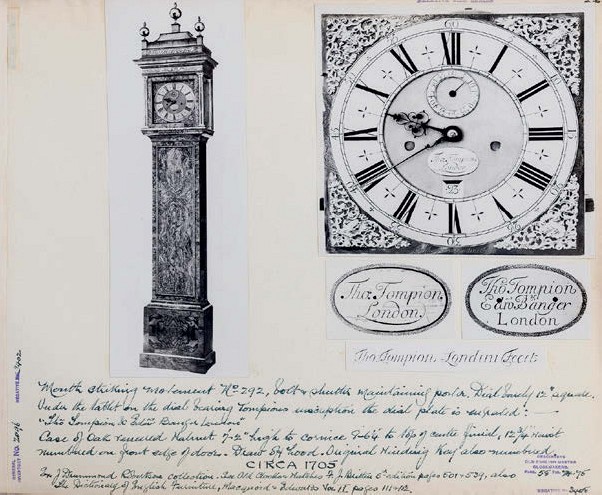 60
Tho Tompion
London
23
Tho: Tompion
London
Tho Tompion
Edw Banger
London
Tho Tompion Londini Fecit
Month striking movement No 292, bolt & shutter maintaining power. Dial 12" square.
Under the tablet on the dial bearing Tompions inscription the dial plate is engraved: —
"Tho Tompion & Edw Banger London"
Case of Oak veneered Walnut 7-2" high to cornice 9-6¼ to top of centre finial, 12¾ waist
numbered on front edge of door. Original Winding Key also numbered.
CIRCA 1705
In J Drummond Robertson collection. See Old Clocks & Watches F. J. Britten 6th edition pages 501 & 539, also
The Dictionary of English Furniture, Macquoid & Edwards Vol II pages 111-112